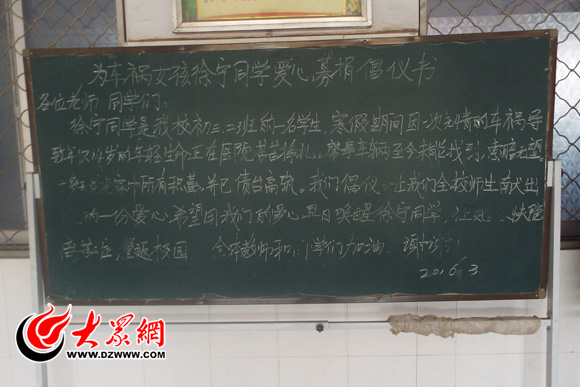 为车祸女孩徐宁同学爱心募捐倡仪书
各位老师、同学们：
徐宁同学是我校初三.二班的一名学生，寒假期间因一次无情的车祸导
致年仅14岁的年轻生命正在医院苦苦挣扎。肇事车辆至今未能找到，索赔无望
所有积蓄，并已债台高筑。我们倡仪：让我们全校师生献出
的一份爱心，希望用我们的爱心早日唤醒徐宁同学，让她
重返校园。全体教师和同学们加油。谢谢！
2016.3
大众網
WWW.DZWWW.COM